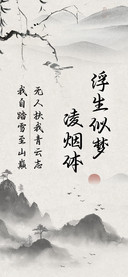 浮生似梦
凌烟体
无人扶我青云志
我自踏雪至山巅